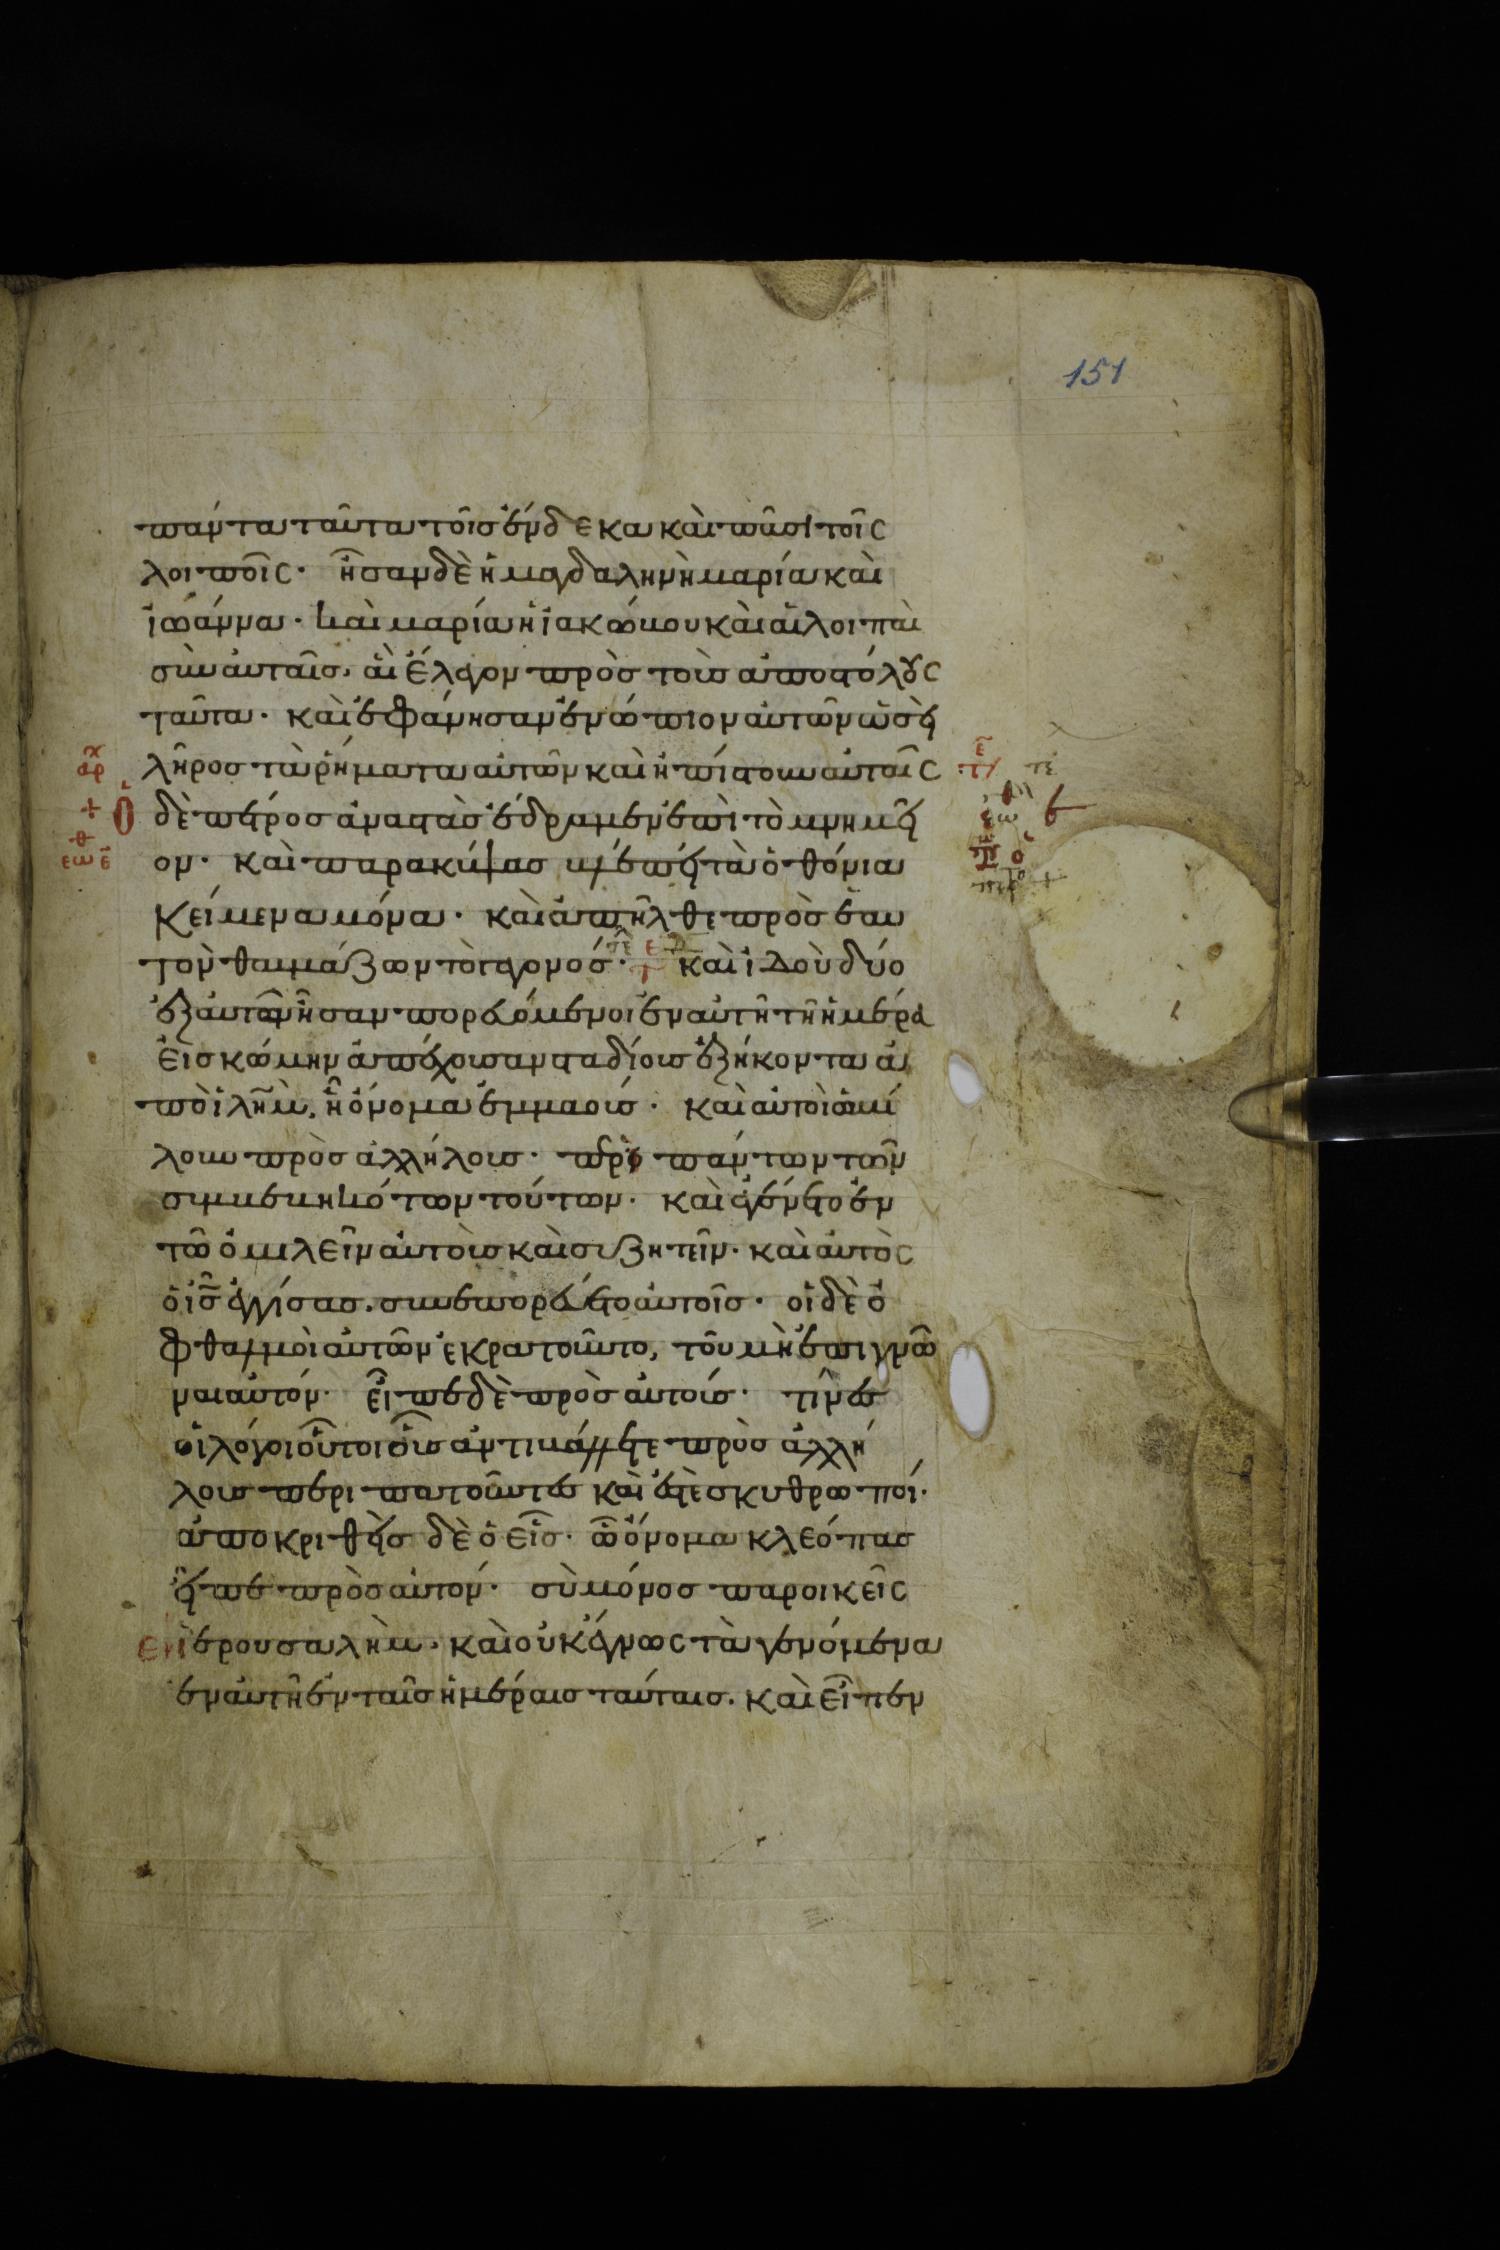 151
πάντα ταῦτα τοῖς ἕνδεκα καὶ πᾶσι τοῖς
λοιποῖς· ἦσαν δὲ ἡ μαγδαληνὴ μαρία καὶ
ἰωάννα· καὶ μαρία ἡ ἰακώβου καὶ αἱ λοιπαὶ
σὺν αὐταῖς, αἳ ἔλεγον πρὸς τοὺς ἀποστόλους
ταῦτα· καὶ ἐφάνησαν ἐνώπιον αὐτῶν ὡσεὶ
λῆρος τὰ ῥήματα αὐτῶν καὶ ἠπίστουν αὐταῖς
Ὁ δὲ πέτρος ἀναστὰς ἔδραμεν ἐπὶ τὸ μνημεῖ
ον· καὶ παρακύψας βλέπει τὰ ὀθόνια
κείμενα μόνα· καὶ ἀπῆλθε πρὸς ἑαυ
τὸν θαυμάζων τὸ γεγονός· καὶ ἰδοὺ δύο
ἐξ αὐτῶν ἦσαν πορευόμενοι ἐν αὐτῇ τῇ ἡμέρα
εἰς κώμην ἀπέχουσαν σταδίους ἑξήκοντα ἀ
πὸ ἰλῆμ, ᾗ ὄνομα ἐμμαούς· καὶ αὐτοὶ ὡμί
λουν πρὸς ἀλλήλους· περὶ πάντων τῶν
συμβεβηκότων τούτων· καὶ ἐγένετο ἐν
τῷ ὁμιλεῖν αὐτοὺς καὶ συζητεῖν· καὶ αὐτὸς
ὁ ἰς ἐγγίσας. συνεπορεύετο αὐτοῖς· οἱ δὲ ὀ
φθαλμοὶ αὐτῶν ἐκρατοῦντο, τοῦ μὴ ἐπιγνῶ
ναι αὐτόν· εἶπε δὲ πρὸς αὐτούς· τίνες
οἱ λόγοι οὗτοι οὓς ἀντιβάλλετε πρὸς ἀλλή
λους περιπατοῦντες καὶ ἐστὲ σκυθρωποί·
ἀποκριθεὶς δὲ ὁ εἷς· ᾧ ὄνομα κλεόπας
εἶπε πρὸς αὐτόν· σὺ μόνος παροικεῖς
ἐν ἱερουσαλὴμ· καὶ οὐκ ἔγνως τὰ γενόμενα
ἐν αὐτῇ ἐν ταῖς ἡμέραις ταύταις. καὶ εἶπεν